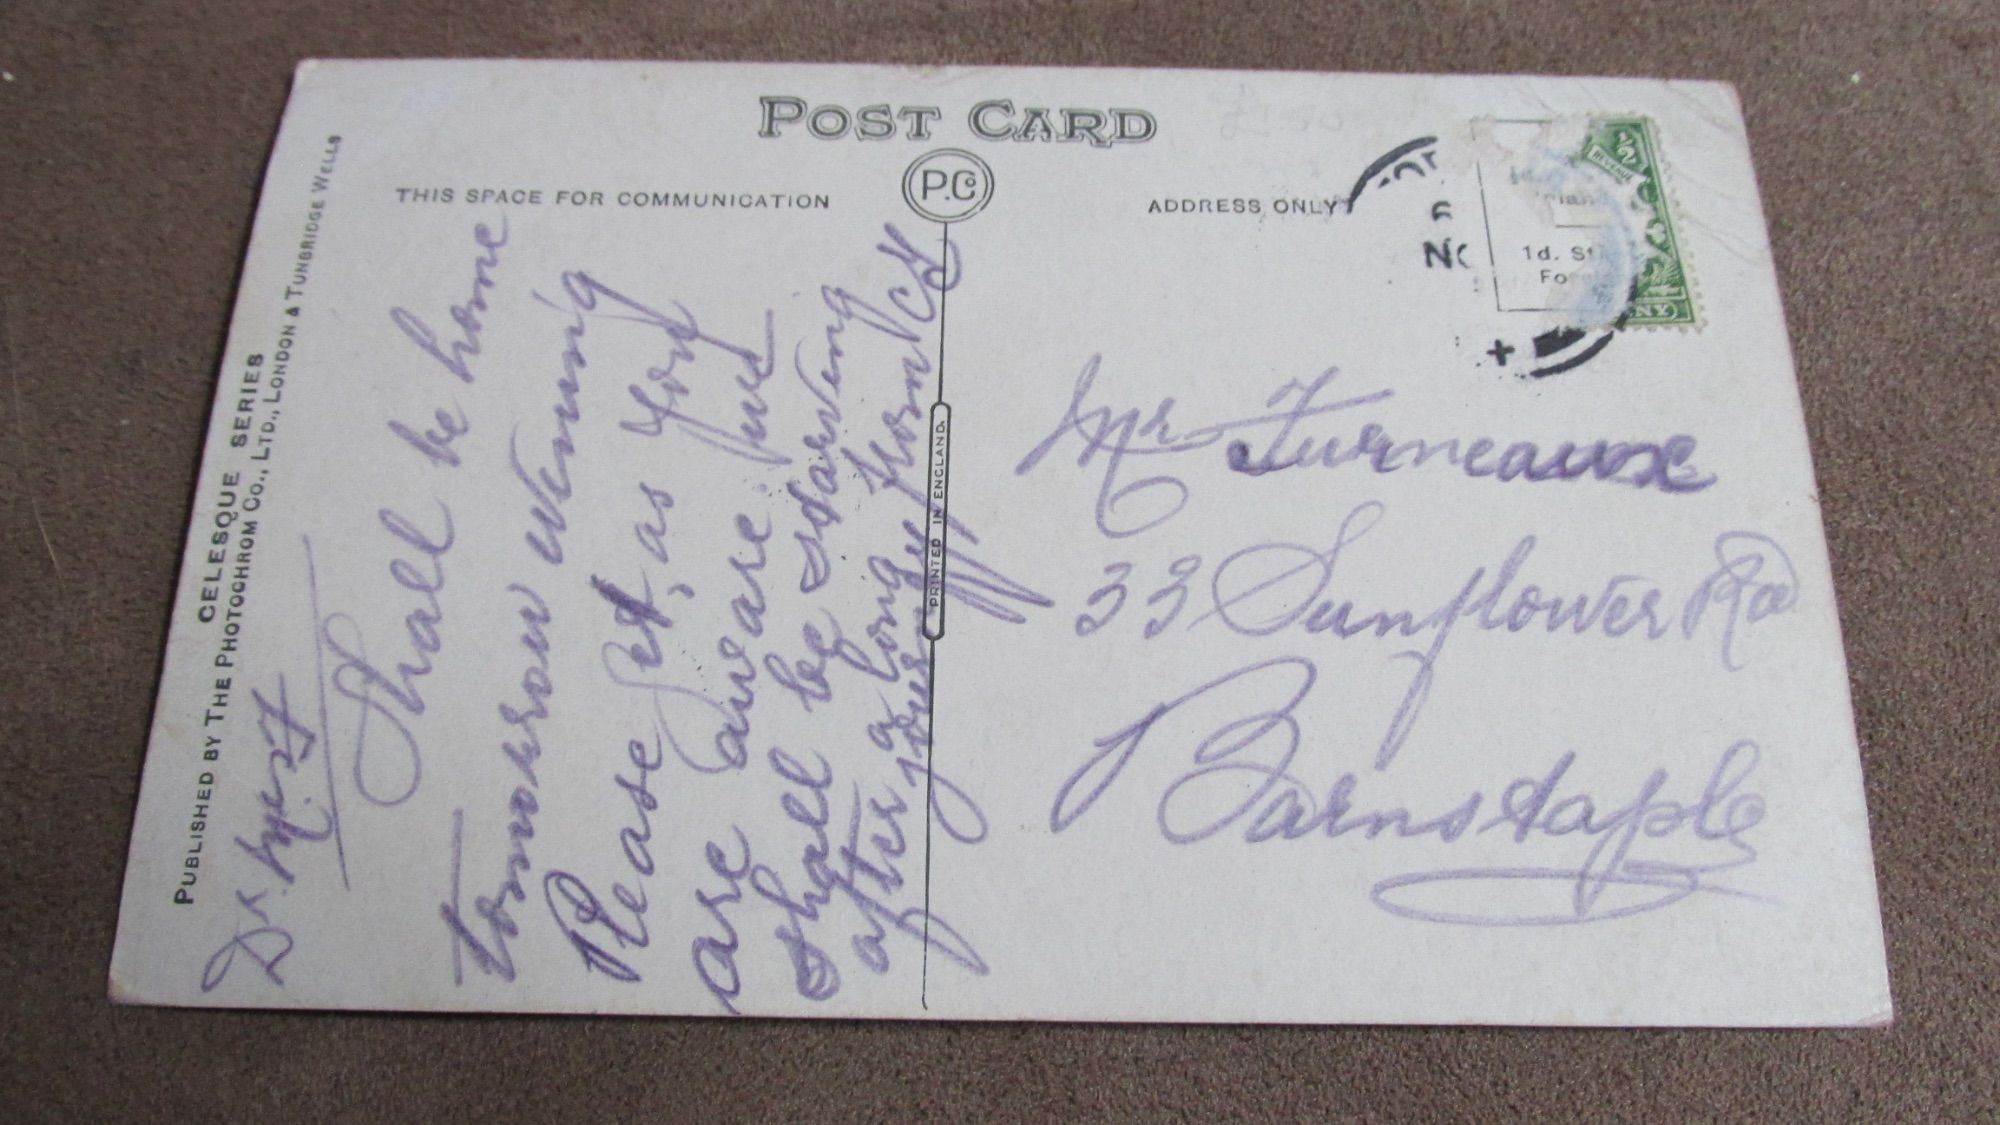 POST CARD
P.Co
THIS SPACE FOR COMMUNICATION
ADDRESS ONLY
1d. St
NY
1/2
REVENUE
CELESQUE SERIES
PUBLISHED BY THE PHOTOCHROM CO., LTD., LONDON & TUNBRIDGE WELLS
PRINTED IN ENGLAND.
Dr Mr F
Shall be home
tomorrow evening
Please get, as you
are aware just
shall be starving
after a long
journey from
Mr Furneaux
33 Sunflower Rd
Barnstaple